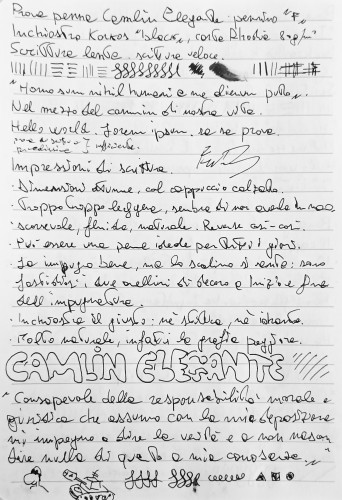 Prova penna Camlin Elegante - pennino "F"
Inchiostro Korkos "black", carta Rhodia
Scrittura lenta, scrittura veloce.
"Homo sum nihil humani a me alienum puto"
Nel mezzo del cammin di nostra vita.
Hello world. Lorem ipsum. sa sa prova.
prova di scrittura
Impressioni di scrittura.
· Dimensioni ottime, col cappuccio calzato.
· Troppo troppo leggera, sembra di non averla in mano
scorrevole, fluida, naturale. Reverse così-così.
· Può essere una penna ideale per tutti i giorni.
· La impugno bene, ma lo scalino si sente: sono
fastidiosi i due anellini di decoro a inizio e fine
dell'impugnatura.
· Inchiostra il giusto: nè asciutta, nè idrante.
· Molto naturale, infatti la grafia peggiora.
CAMLIN ELEGANTE
"Consapevole della responsabilità morale e
giuridica che assumo con la mia deposizione
mi impegno a dire la verità e a non nascon
dere nulla di quanto a mia conoscenza."